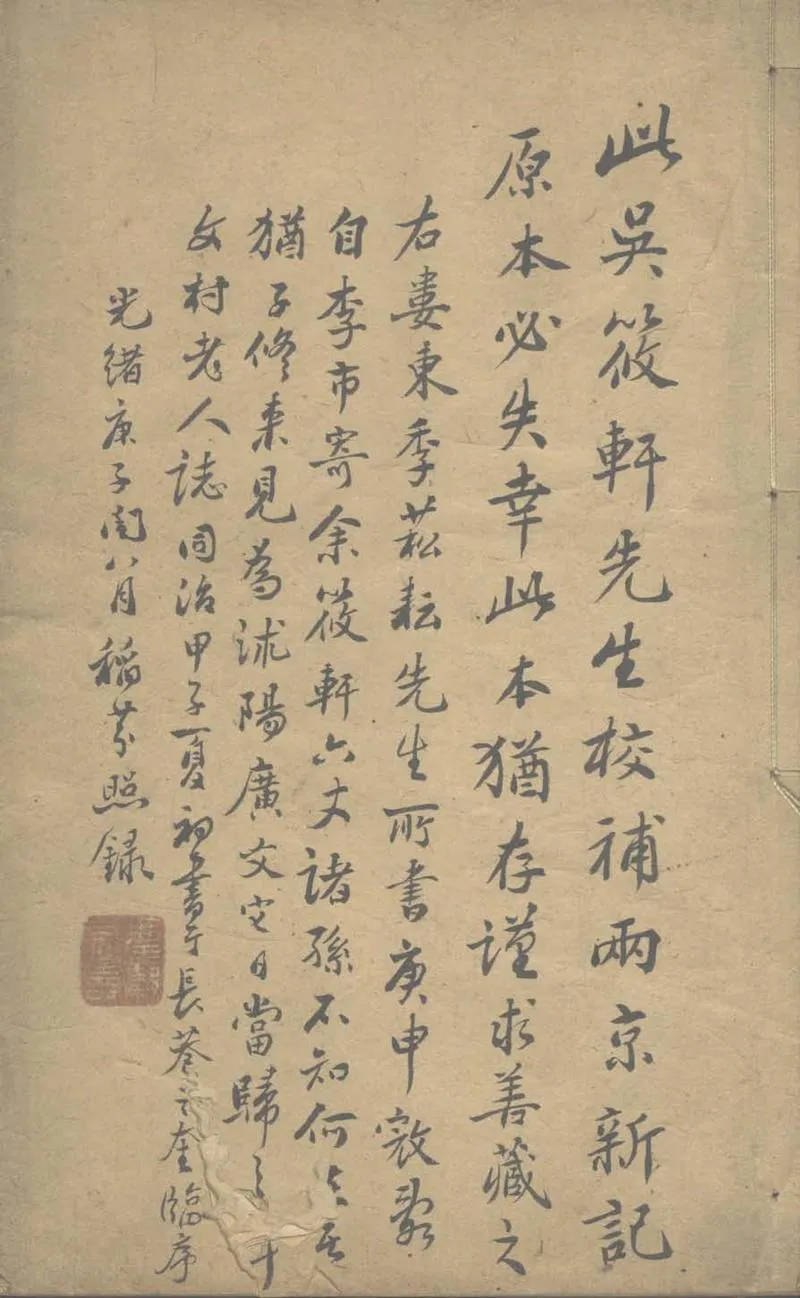 此吳筱軒先生校補兩京新記
原本必失幸此本猶存謹求善藏之
右婁東季菘耘先生所書庚申
自李市寄余筱軒六丈諸孫不知何
猶子修來見為沭陽廣文它日當歸之
文村老人誌同治甲子夏初書于長巷之奎臨序
光緒庚子閏八月稻芬照錄